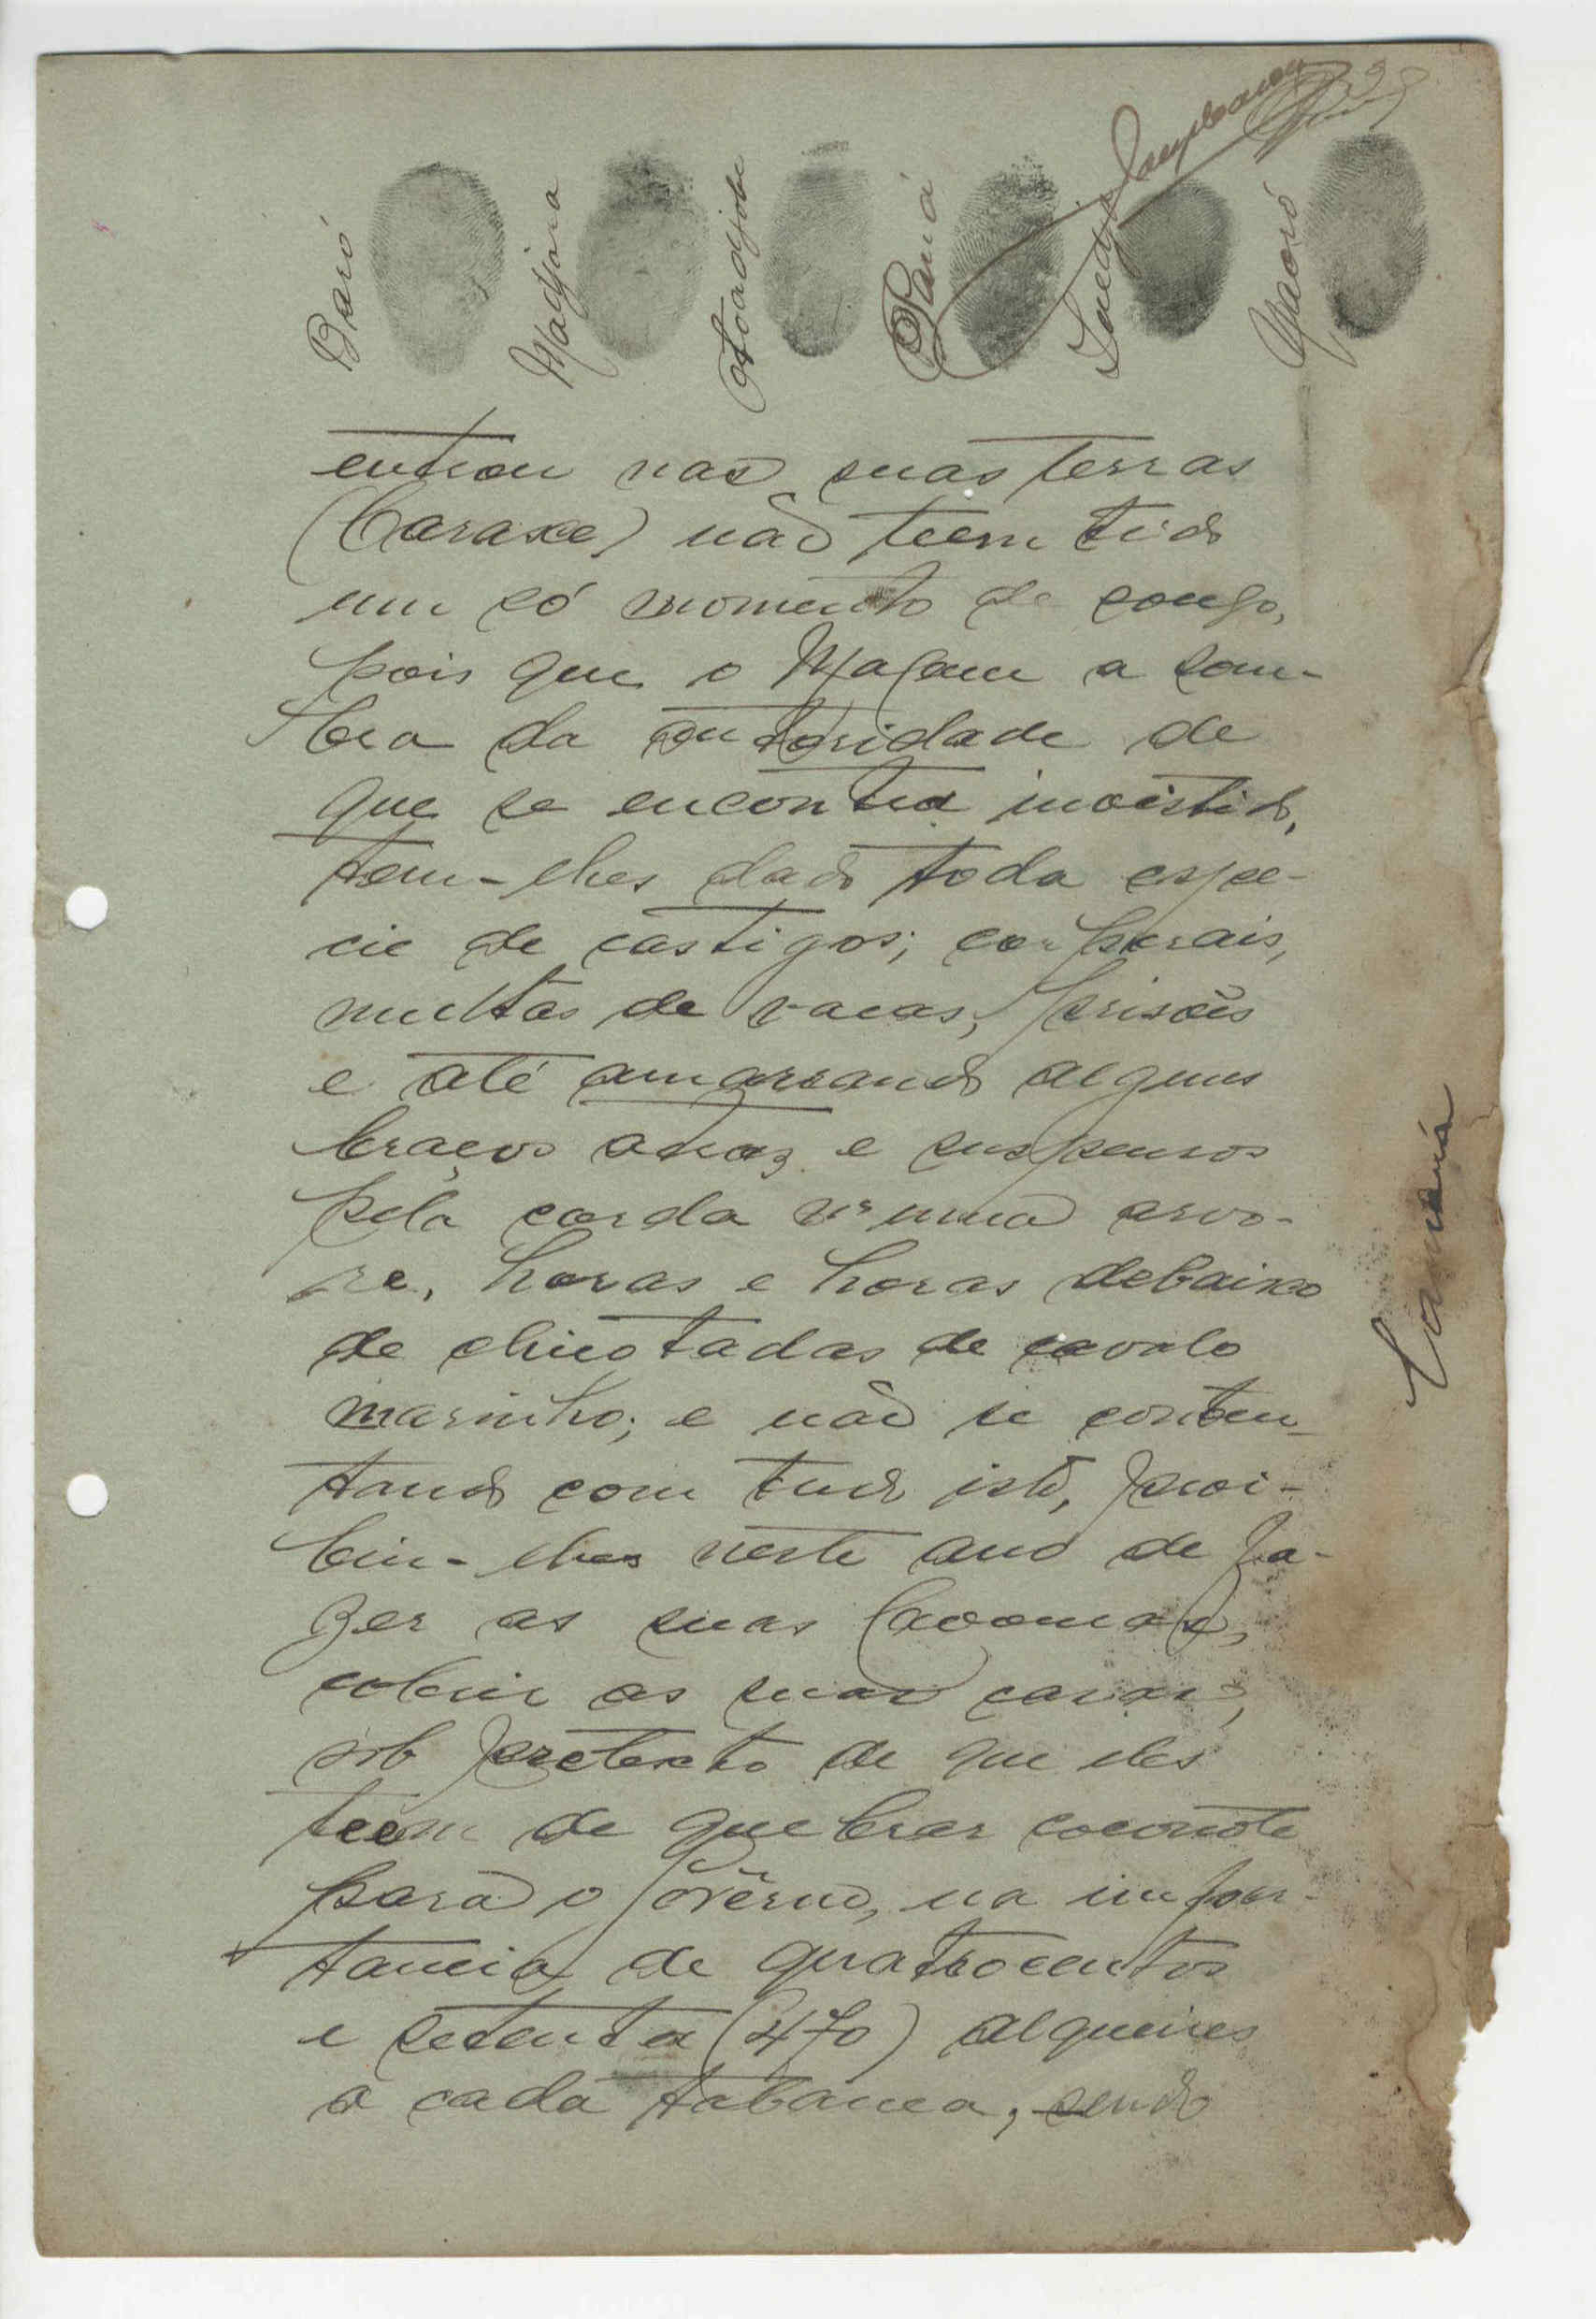 Baró
Madjona
Paná
entrou nas suas terras
(Caraxe) não teem tido
um só momento de
pois que o Mafam a som-
bra da autoridade de
que se encontra investido,
tem-lhes dado toda espe-
cie de castigos; corporais,
multas de vacas, prisões
e até amarrando alguns
braços atraz e suspensos
pela corda n'uma arvo-
re, horas e horas debaixo
de chicotadas de cavalo
marinho; e não se conten-
tando com tudo isto, proi-
biu-lhes neste ano de fa-
zer as suas lavouras,
cobrir as suas casas,
sob pretexto de que eles
teem de quebrar coconote
para o govêrno, na impor-
tancia de quatrocentos
e setenta (470) alqueires
a cada tabanca, sendo